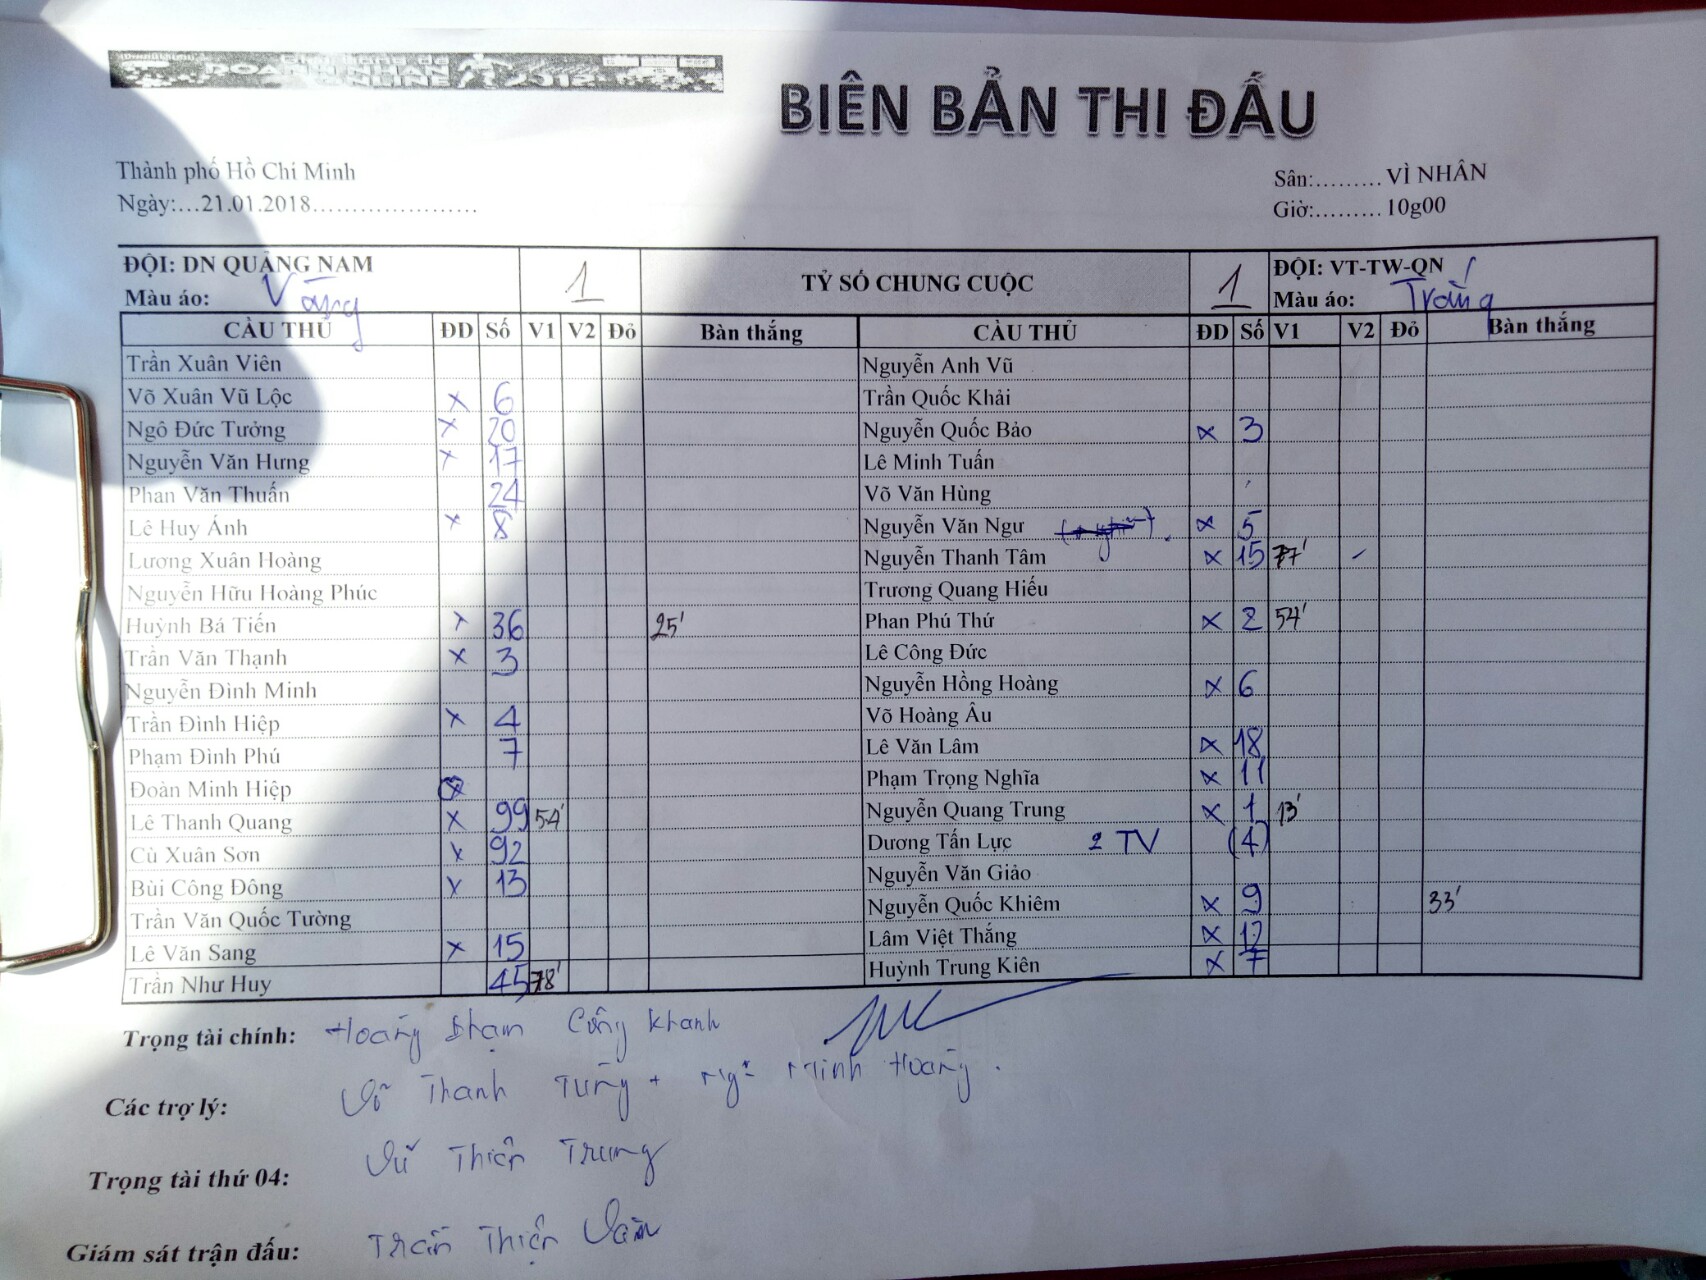 DOANH NHAN
ONLINE 2018
BIÊN BẢN THI ĐẤU
Thành phố Hồ Chí Minh
Ngày:...21.01.2018.....................
Sân:......... VÌ NHÂN
Giờ:......... 10g00
ĐỘI: DN QUẢNG NAM 1 TỶ SỐ CHUNG CUỘC 1 ĐỘI: VT-TW-QN
Màu áo: Vàng Màu áo: Trắng
CẦU THỦ ĐD Số V1 V2 Đỏ Bàn thắng CẦU THỦ ĐD Số V1 V2 Đỏ Bàn thắng
Trần Xuân Viên Nguyễn Anh Vũ
Võ Xuân Vũ Lộc x 6 Trần Quốc Khải
Ngô Đức Tưởng x 20 Nguyễn Quốc Bảo x 3
Nguyễn Văn Hưng x 17 Lê Minh Tuấn
Phan Văn Thuấn 24 Võ Văn Hùng
Lê Huy Ánh x 8 Nguyễn Văn Ngư x 5
Lương Xuân Hoàng Nguyễn Thanh Tâm x 15 77'
Nguyễn Hữu Hoàng Phúc Trương Quang Hiếu
Huỳnh Bá Tiến x 36 25' Phan Phú Thứ x 2 54'
Trần Văn Thạnh x 3 Lê Công Đức
Nguyễn Đình Minh Nguyễn Hồng Hoàng x 6
Trần Đình Hiệp x 4 Võ Hoàng Âu
Phạm Đình Phú 7 Lê Văn Lâm x 18
Đoàn Minh Hiệp x Phạm Trọng Nghĩa x 11
Lê Thanh Quang x 99 54' Nguyễn Quang Trung x 1 13'
Cù Xuân Sơn x 92 Dương Tấn Lực 2 TV (4)
Bùi Công Đông x 13 Nguyễn Văn Giảo
Trần Văn Quốc Tường Nguyễn Quốc Khiêm x 9 33'
Lê Văn Sang x 15 Lâm Việt Thắng x 12
Trần Như Huy 45 78' Huỳnh Trung Kiên x 7
Trọng tài chính: Hoàng Phạm Công Khanh
Các trợ lý: Võ Thanh Tùng + Ng. Minh Hoàng.
Trọng tài thứ 04: Vũ Thiên Trung
Giám sát trận đấu: Trần Thiện